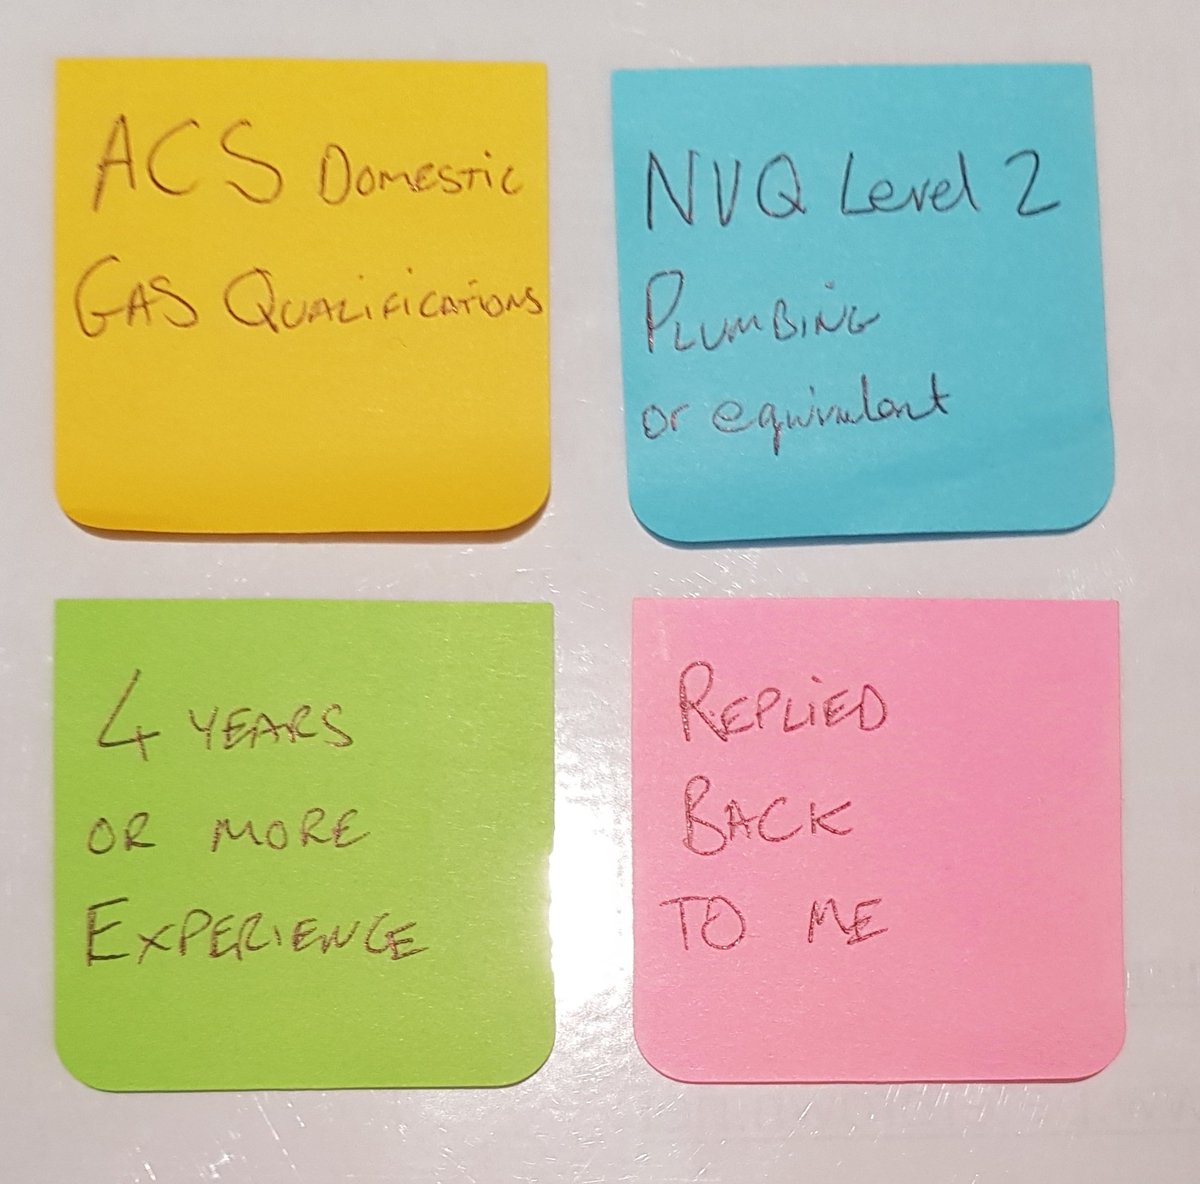 ACS DOMESTIC
GAS QUALIFICATIONS
NVQ Level 2
PLUMBING
or equivalent
4 YEARS
OR MORE
EXPERIENCE
REPLIED
BACK
TO ME